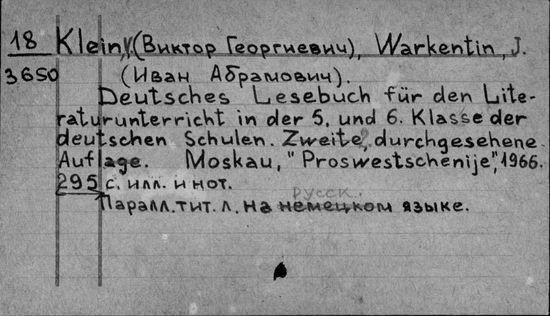 18 Klein, (Виктор Георгиевич), Warkentin, J.
3650 (Иван Абрамович).
Deutsches Lesebuch für den Lite-
raturunterricht in der 5. und 6. Klasse der
deutschen Schulen. Zweite, durchgesehene
Auflage. Moskau, "Proswestschenije", 1966.
295 с. илл. и нот.
русск.
Паралл. тит. л. на немецком языке.